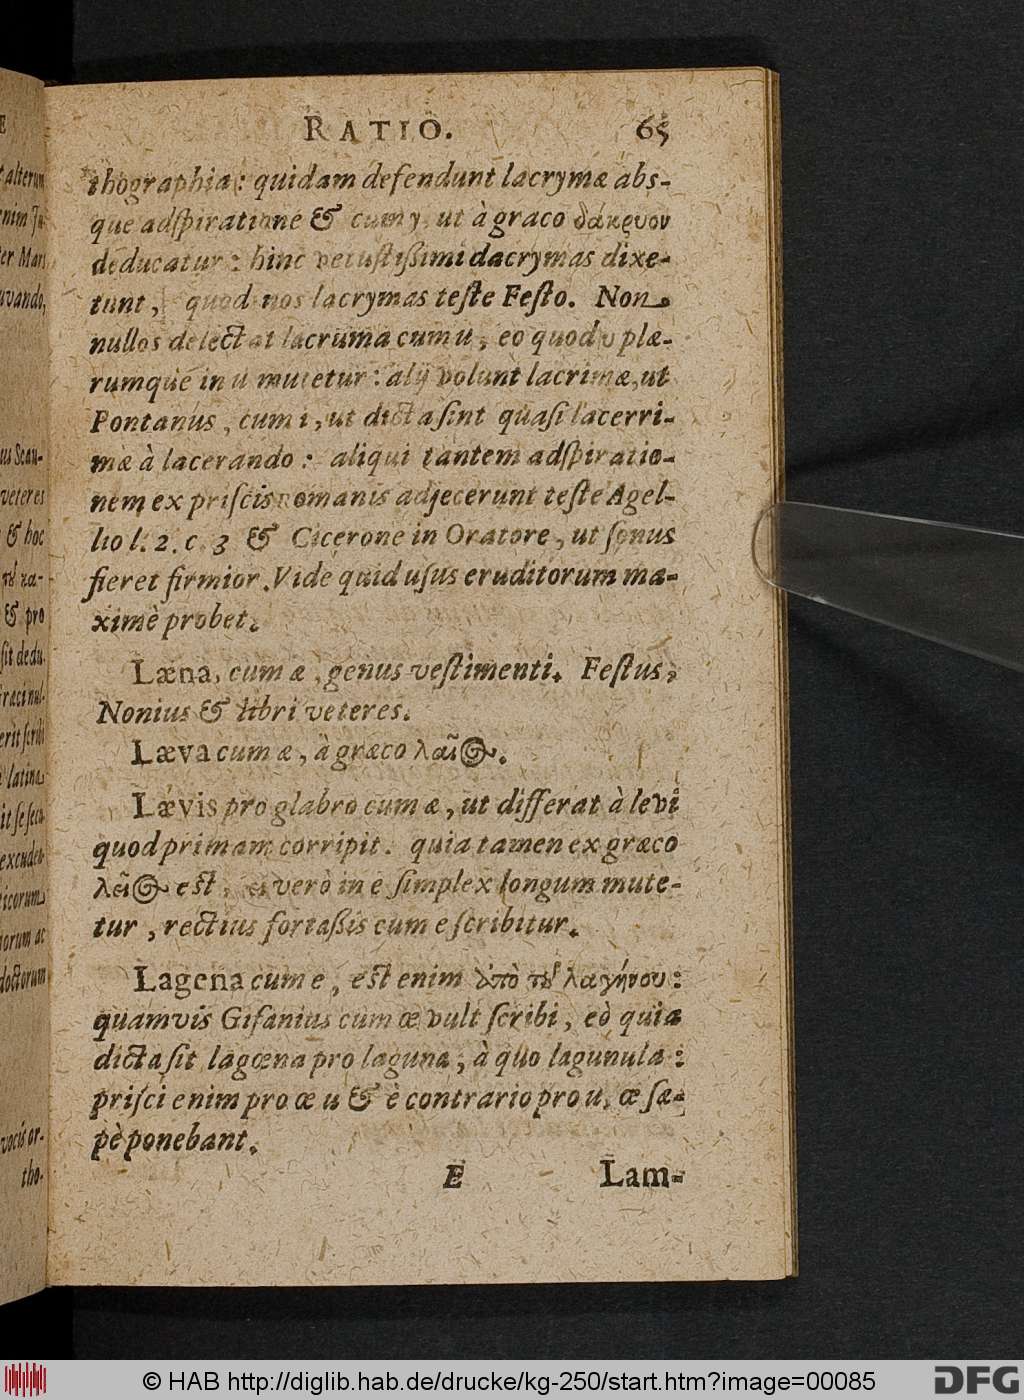 RATIO. 65
thographia: quidam defendunt lacrymæ abs-
que adſpiratione & cum y, ut à græco δάκρυον
deducatur: hinc vetuſtißimi dacrymas dixe-
runt, quod nos lacrymas teſte Feſto. Non-
nullos delectat lacruma cum u, eo quod υ plæ-
rumque in u mutetur: alij volunt lacrimæ, ut
Pontanus, cum i, ut dicta ſint quaſi lacerri-
mæ à lacerando: aliqui tantem adſpiratio-
nem ex priſcis Romanis adjecerunt teſte Agel-
lio l. 2. c. 3 & Cicerone in Oratore, ut ſonus
fieret firmior. Vide quid uſus eruditorum ma-
ximè probet.
Læna, cum æ, genus veſtimenti. Feſtus,
Nonius & libri veteres.
Læva cum æ, à græco λαῖος.
Lævis pro glabro cum æ, ut differat à levi
quod primam corripit. quia tamen ex græco
λεῖος est, ει verò in e ſimplex longum mute-
tur, rectius fortaßis cum e ſcribitur.
Lagena cum e, est enim ἀπὸ τοῦ λαγήνου:
quamvis Giſanius cum œ vult ſcribi, eò quia
dicta ſit lagœna pro laguna, à quo lagunula:
priſci enim pro œ u & è contrario pro u, œ ſæ-
pè ponebant.
E Lam-
t alterum
enim Ju-
ter Mart
uvando,
us Scau-
veteres
& hoc
τοῦ κα-
& pro
ſit dedu-
græci nul-
erit ſcribi
latina
it ſe ſecu
excuden-
ticorum
iorum ac
doctorum
vocis or-
tho-
© HAB http://diglib.hab.de/drucke/kg-250/start.htm?image=00085
DFG